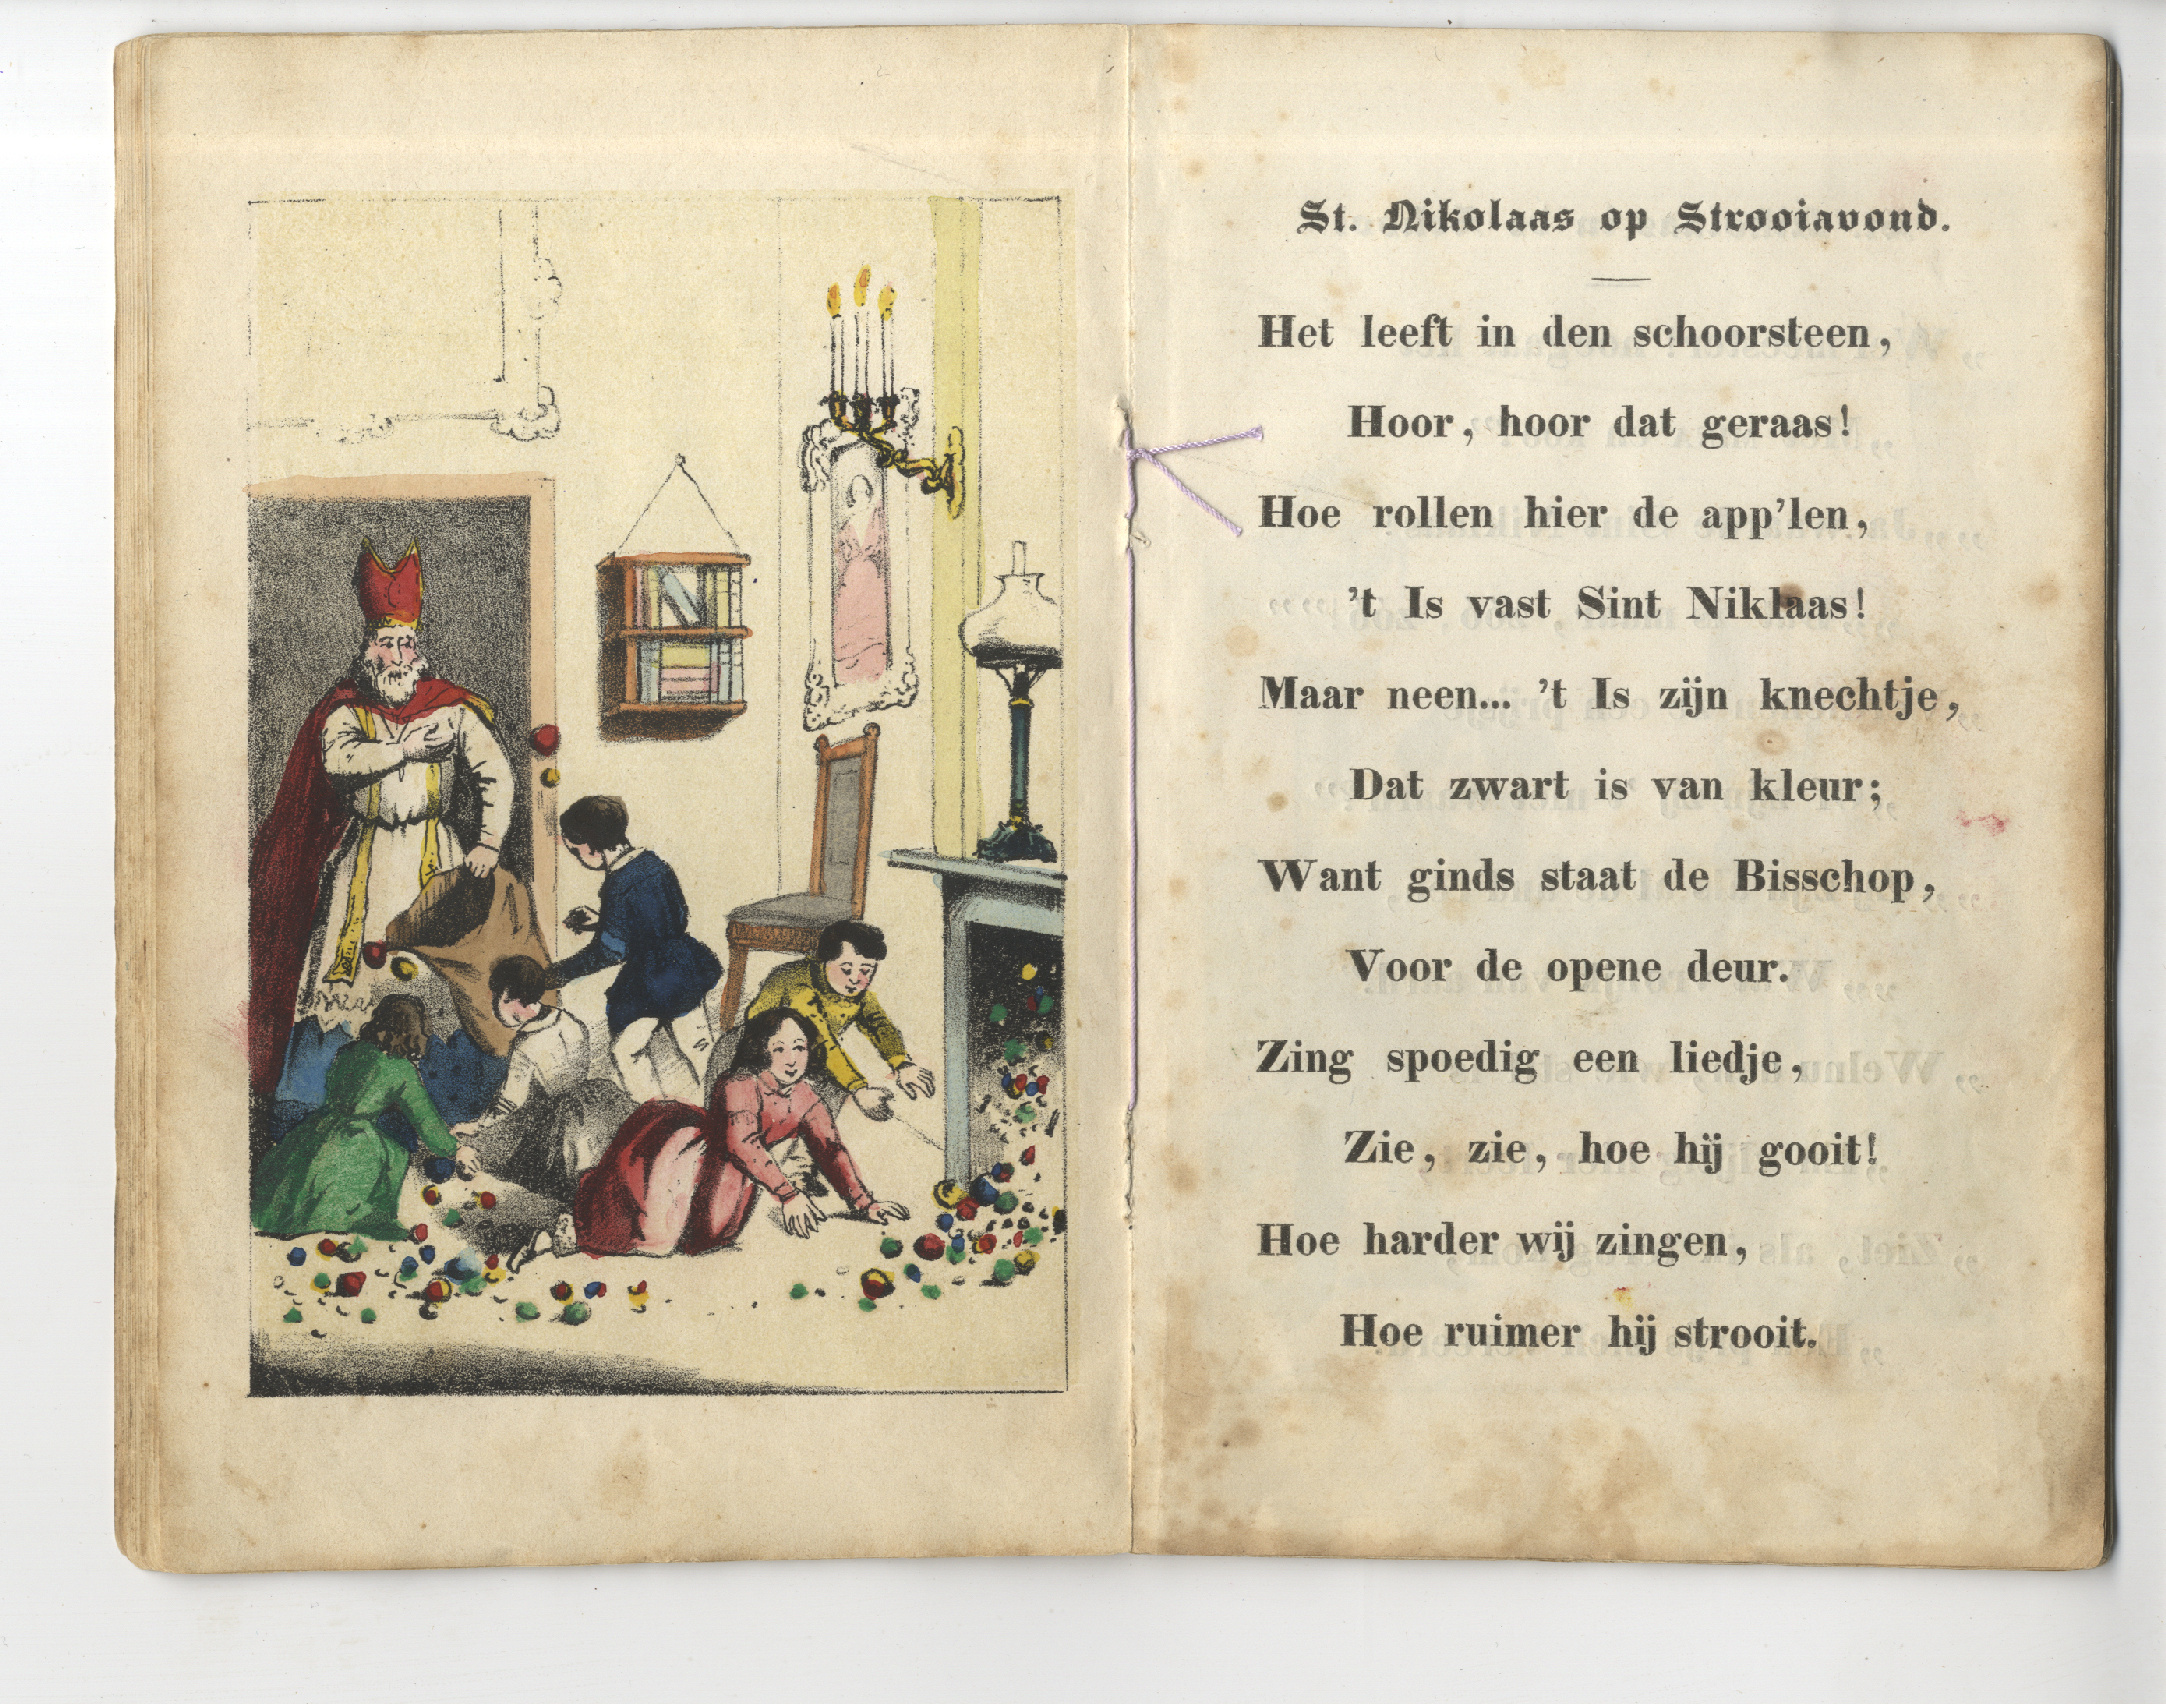 St. Nikolaas op Strooiavond.
Het leeft in den schoorsteen,
Hoor, hoor dat geraas!
Hoe rollen hier de app'len,
't Is vast Sint Niklaas!
Maar neen... 't Is zijn knechtje,
Dat zwart is van kleur;
Want ginds staat de Bisschop,
Voor de opene deur.
Zing spoedig een liedje,
Zie, zie, hoe hij gooit!
Hoe harder wij zingen,
Hoe ruimer hij strooit.